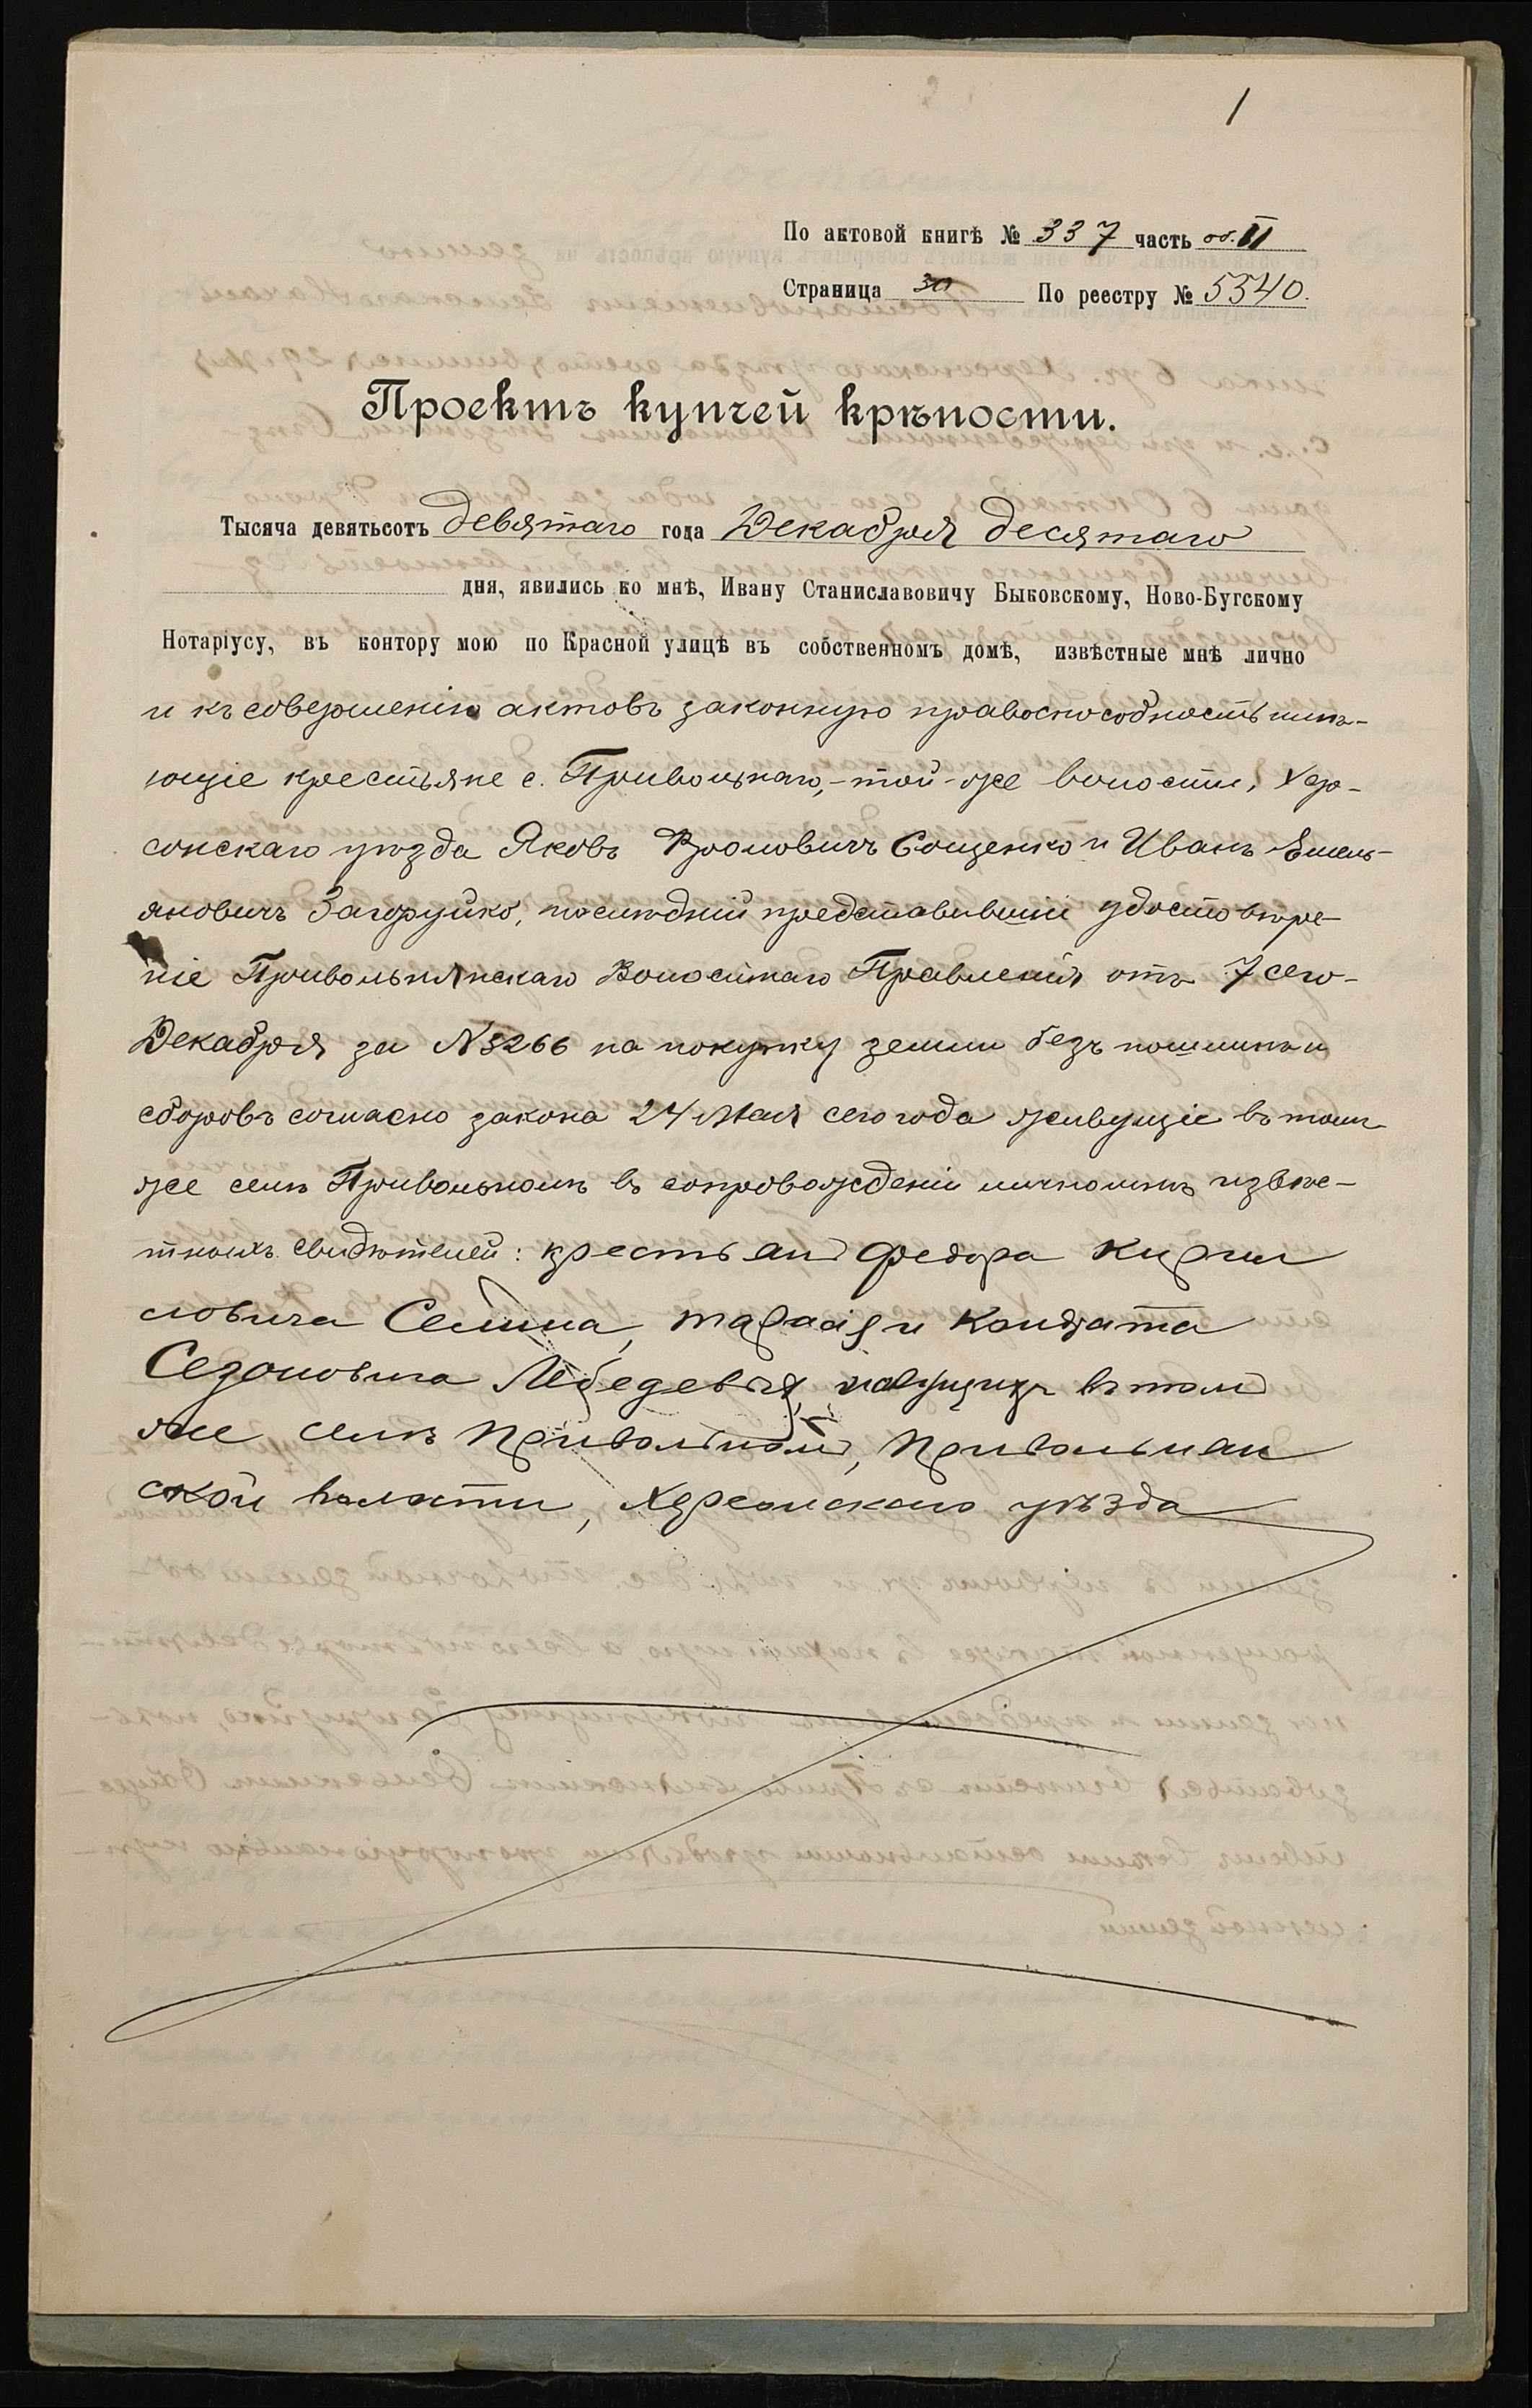 1
По актовой книгѣ № 337 часть об. II
Страница 30 По реестру № 5540.
Проектъ купчей крѣпости.
Тысяча девятьсотъ девятаго года Декабря десятаго
дня, явились ко мнѣ, Ивану Станиславовичу Быковскому, Ново-Бугскому
Нотаріусу, въ контору мою по Красной улицѣ въ собственномъ домѣ, извѣстные мнѣ лично
и къ совершенію актовъ законную правоспособность имѣ-
ющіе крестьяне с. Привольнаго, - той-же волости, Хер-
сонскаго уѣзда Яковъ Сощенко и Иванъ Емель-
яновичъ Загоруйко, послѣдній представившій удостовѣре-
ніе Привольнянскаго Волостнаго Правленія отъ 7 сего-
Декабря за № 3266 на покупку земли безъ пошлинъ и
сборовъ согласно закона 24 Мая сего года живущіе въ томъ
же селѣ Привольномъ въ сопровожденіи лично мнѣ извѣс-
тныхъ свидѣтелей: крестьян Федора Кирил
ловича Селина, Тарасія и Кондрата
Сезоновича Лебедевыя, живущихъ въ том
же селѣ Привольном, Привольнян
ской волости, Херсонскаго уѣзда